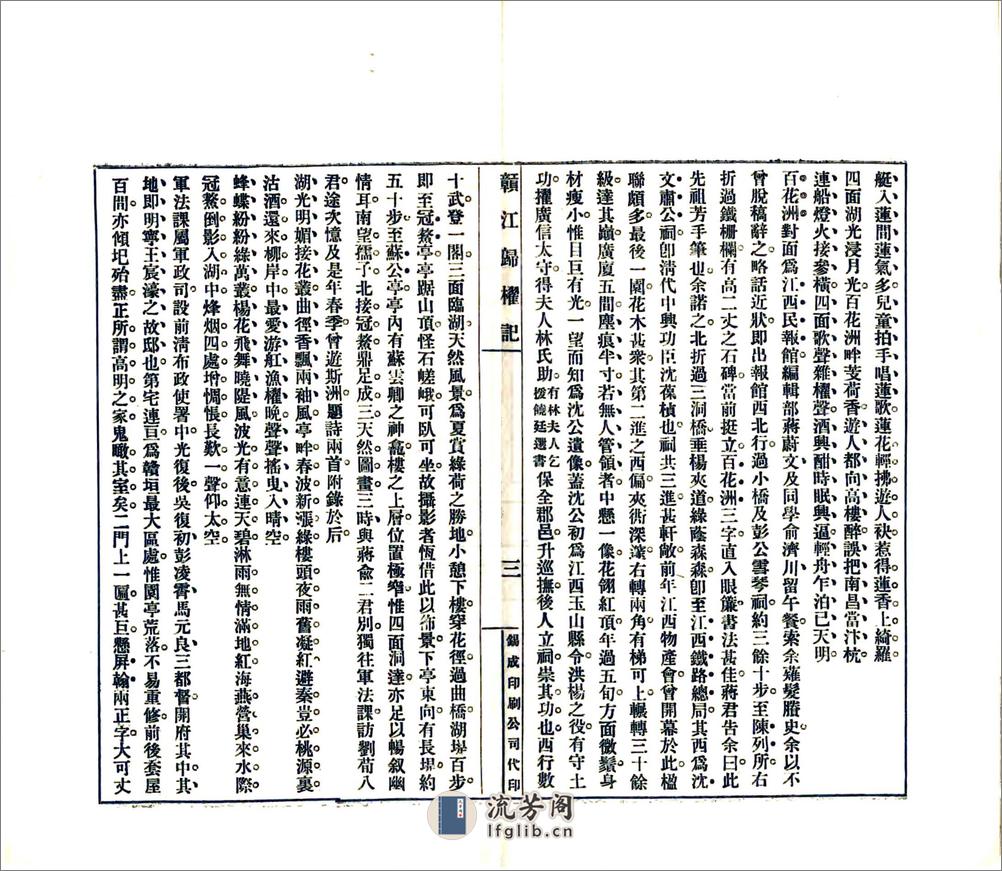 艇入蓮間蓮氣多兒童拍手唱蓮歌蓮花輕拂遊人袂惹得蓮香上綺羅
四面湖光浸月光百花洲畔芰荷香遊人都向高樓醉誤把南昌當汴杭
連船燈火接參橫四面歌聲雜櫂聲酒興酣時眠興逼輕舟乍泊已天明
百花洲對面爲江西民報館編輯部蔣蔚文及同學俞濟川留午餐索余薙髮賸史余以不
曾脫稿辭之略話近狀即出報館西北行過小橋及彭公雲琴祠約三餘十步至陳列所右
折過鐵柵欄有高二丈之石碑當前挺立百花洲三字直入眼簾書法甚佳蔣君告余曰此
先祖芳手筆也余諾之北折過三洞橋垂楊夾道綠蔭森森即至江西鐵路總局其西爲沈
文肅公祠卽淸代中興功臣沈葆楨也祠共三進甚軒敞前年江西物產會曾開幕於此楹
聯頗多最後一園花木甚衆其第二進之西偏夾衖深邃右轉兩角有梯可上輾轉三十餘
級達其巓廣廈五間塵痕半寸若無人管領者中懸一像花翎紅頂年過五旬方面微鬚身
材瘦小惟目巨有光一望而知爲沈公遺像蓋沈公初爲江西玉山縣令洪楊之役有守土
功擢廣信太守得夫人林氏助有林夫人乞援饒廷選書保全郡邑升巡撫後人立祠崇其功也西行數
贛江歸櫂記
三
錫成印刷公司代印
十武登一閣三面臨湖天然風景爲夏賞綠荷之勝地小憩下樓穿花徑過曲橋湖堤百步
即至冠鰲亭亭踞山頂怪石嵯峨可臥可坐故攝影者恆借此以佈景下亭東向有長堤約
五十步至蘇公亭亭內有蘇雲卿之神龕樓之上層位置極窄惟四面洞達亦足以暢叙幽
情耳南望孺子北接冠鰲鼎足成三天然圖畫三時與蔣兪二君別獨往軍法課訪劉荀八
君途次憶及是年春季曾遊斯洲題詩兩首附錄於后
湖光明媚接花叢曲徑香飄兩袖風亭畔春波新漲綠樓頭夜雨舊凝紅避秦豈必桃源裏
沽酒還來柳岸中最愛游舡漁櫂晚聲聲搖曳入晴空
蜂蝶紛紛綠萬叢楊花飛舞曉隄風波光有意連天碧淋雨無情滿地紅海燕營巢來水際
冠鰲倒影入湖中烽烟四處增惆悵長歎一聲仰太空
軍法課屬軍政司設前清布政使署中光復後吳復初彭凌霄馬元良三都督開府其中其
地即明寧王宸濠之故邸也第宅連亘爲贛垣最大區處惟園亭荒落不易重修前後奎屋
百間亦傾圮殆盡正所謂高明之家鬼瞰其室矣二門上一匾甚巨懸屏翰兩正字大可丈
流芳阁
lfglib.cn